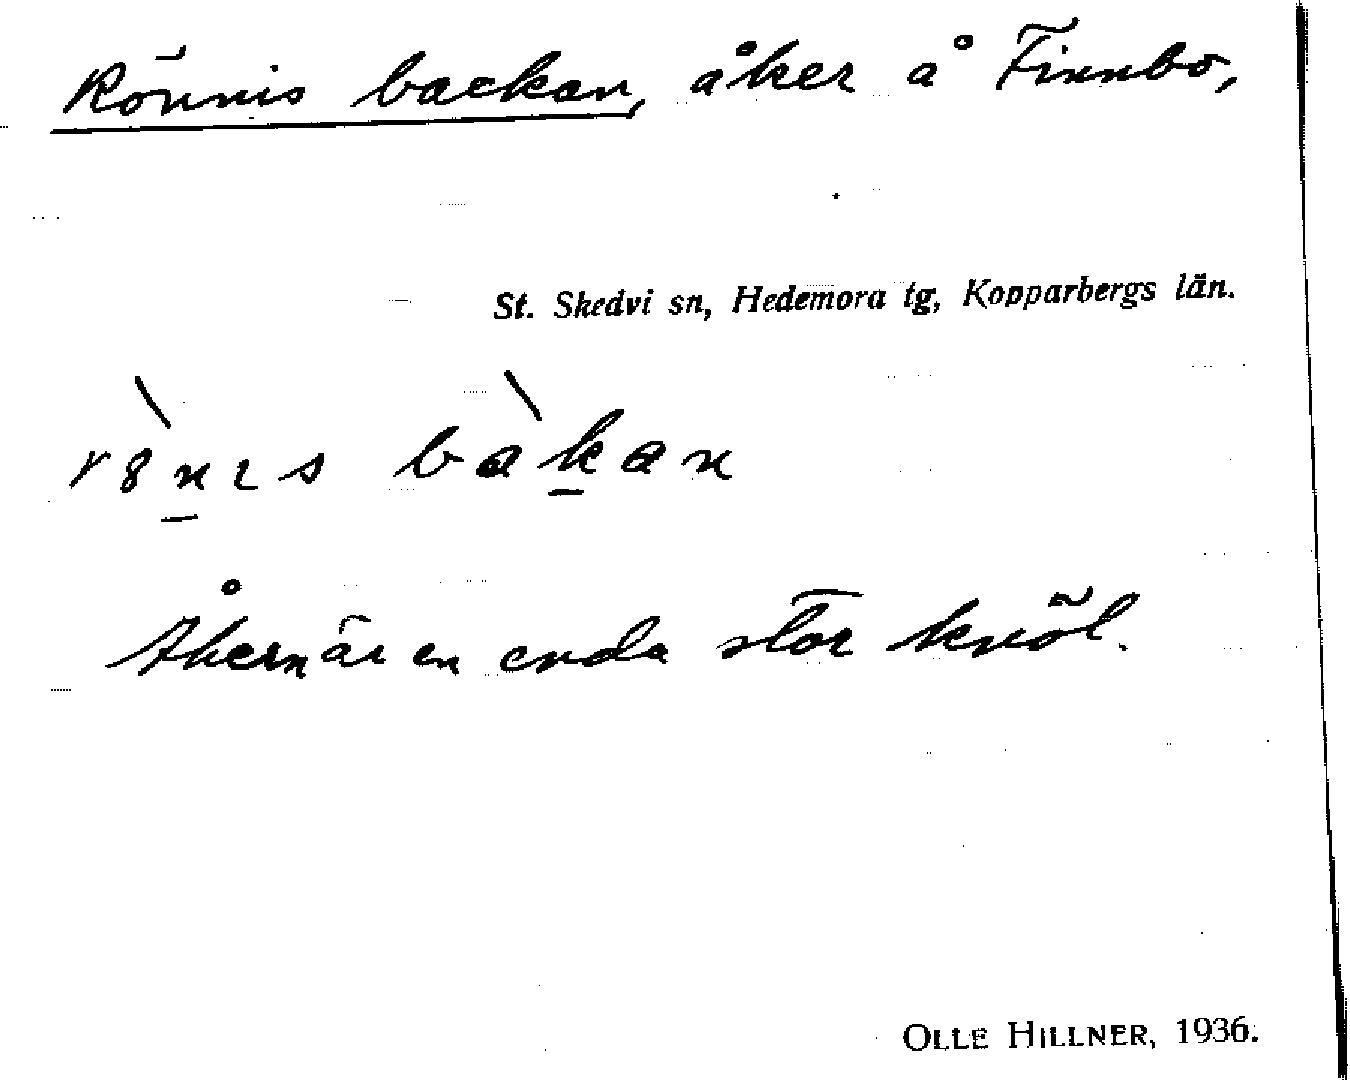 Rönnis backan, åker å Finnbo,
St. Skedvi sn, Hedemora tg, Kopparbergs län.
r8̀n̲ɩs bàk̲an
Åkern är en enda stor knöl.
OLLE HILLNER, 1936.